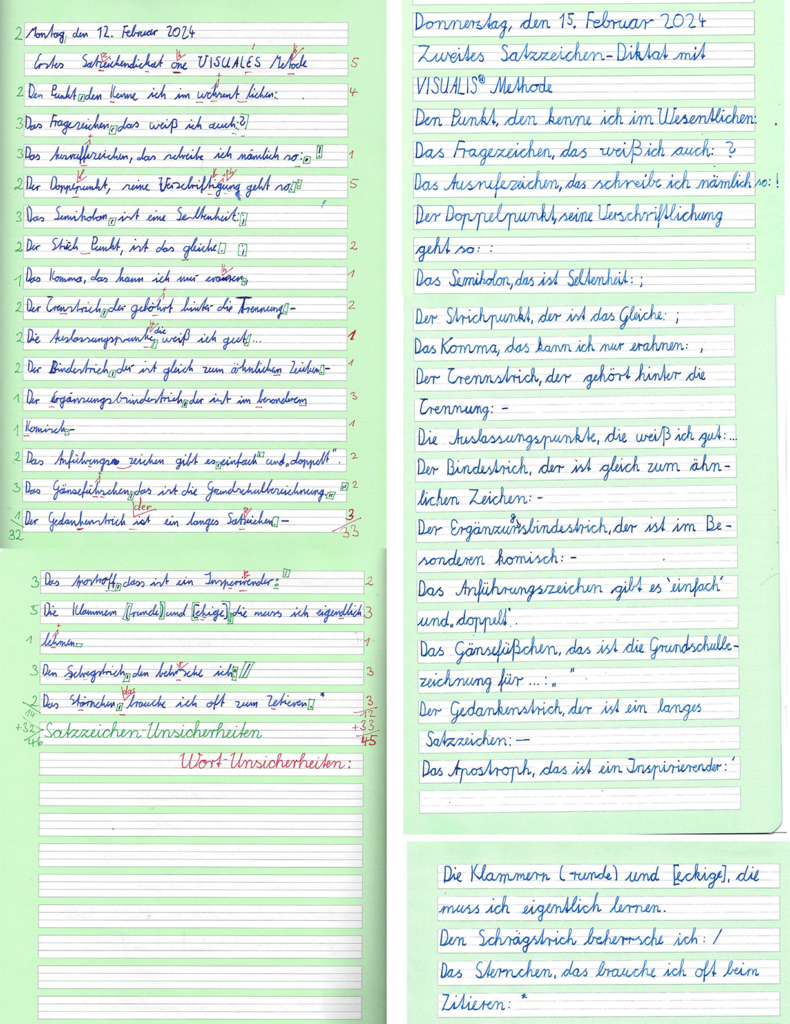 2 Montag, den 12. Februar 2024
Erstes Satzzeichendickat one VISUALES Metode 5
2 Den Punkt, den Kenne ich im wehsent lichen: 4
3 Das Fragezeichen, das weiß ich auch: ?
3 Das Ausruffezeichen, das schreibe ich nämlich so: ! 1
2 Der Doppepunkt, seine Verschriftigung geht so: : 5
3 Das Semikolon, ist eine Seltenheit: ;
2 Der Stich Punkt, ist das gleiche: ; 2
1 Das Komma, das kann ich nur 1
2 Der Trenstrich, der gehöhrt hinter die Trennung: - 2
2 Die Auslassungspunkte, die weiß ich gut: ... 1
2 Der Bindestrich, der ist gleich zum ähnlichen Zeichen: - 1
1 Der ergänzungsbindestrich, der ist im besonderem 3
1 Komisch: - 1
2 Das Anführungs zeichen gibt es, einfach' und „doppelt". 2
3 Das Gänsefüschen, das ist die Grundschulbezeichnung. „ " 2
1 Der Gedankenstrich der ist ein langes Satzeichen: - 3
32 33
3 Das Apostoff, dass ist ein Insperirender: ' 2
5 Die Klammern (runde) und [ekige], die muss ich eigendlich 3
1 lehrnen. 1
3 Den Schregstrich, den behrsche ich: / 3
2 Das Störnchen, das brauche ich oft zum Zetieren: * 3
14 12
+32 Satzzeichen-Unsicherheiten +33
46 45
Wort-Unsicherheiten:
Donnerstag, den 15. Februar 2024
Zweites Satzzeichen-Diktat mit
VISUALIS® Methode
Den Punkt, den kenne ich im Wesentlichen: .
Das Fragezeichen, das weiß ich auch: ?
Das Ausrufezeichen, das schreibe ich nämlich so: !
Der Doppelpunkt, seine Verschriftlichung
geht so: :
Das Semikolon, das ist Seltenheit: ;
Der Strichpunkt, der ist das Gleiche: ;
Das Komma, das kann ich nur erahnen: ,
Der Trennstrich, der gehört hinter die
Trennung: -
Die Auslassungspunkte, die weiß ich gut: ...
Der Bindestrich, der ist gleich zum ähn-
lichen Zeichen: -
Der Ergänzungsbindestrich, der ist im Be-
sonderen komisch: -
Das Anführungszeichen gibt es 'einfach'
und „doppelt".
Das Gänsefüßchen, das ist die Grundschulbe-
zeichnung für ...: „ "
Der Gedankenstrich, der ist ein langes
Satzzeichen: —
Das Apostroph, das ist ein Inspirierender: '
Die Klammern (runde) und [eckige], die
muss ich eigentlich lernen.
Den Schrägstrich beherrsche ich: /
Das Sternchen, das brauche ich oft beim
Zitieren: *